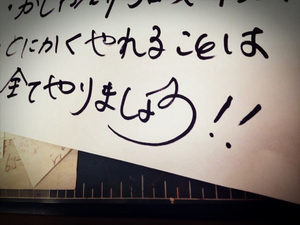 とにかくやれることは
全てやりましょう!!